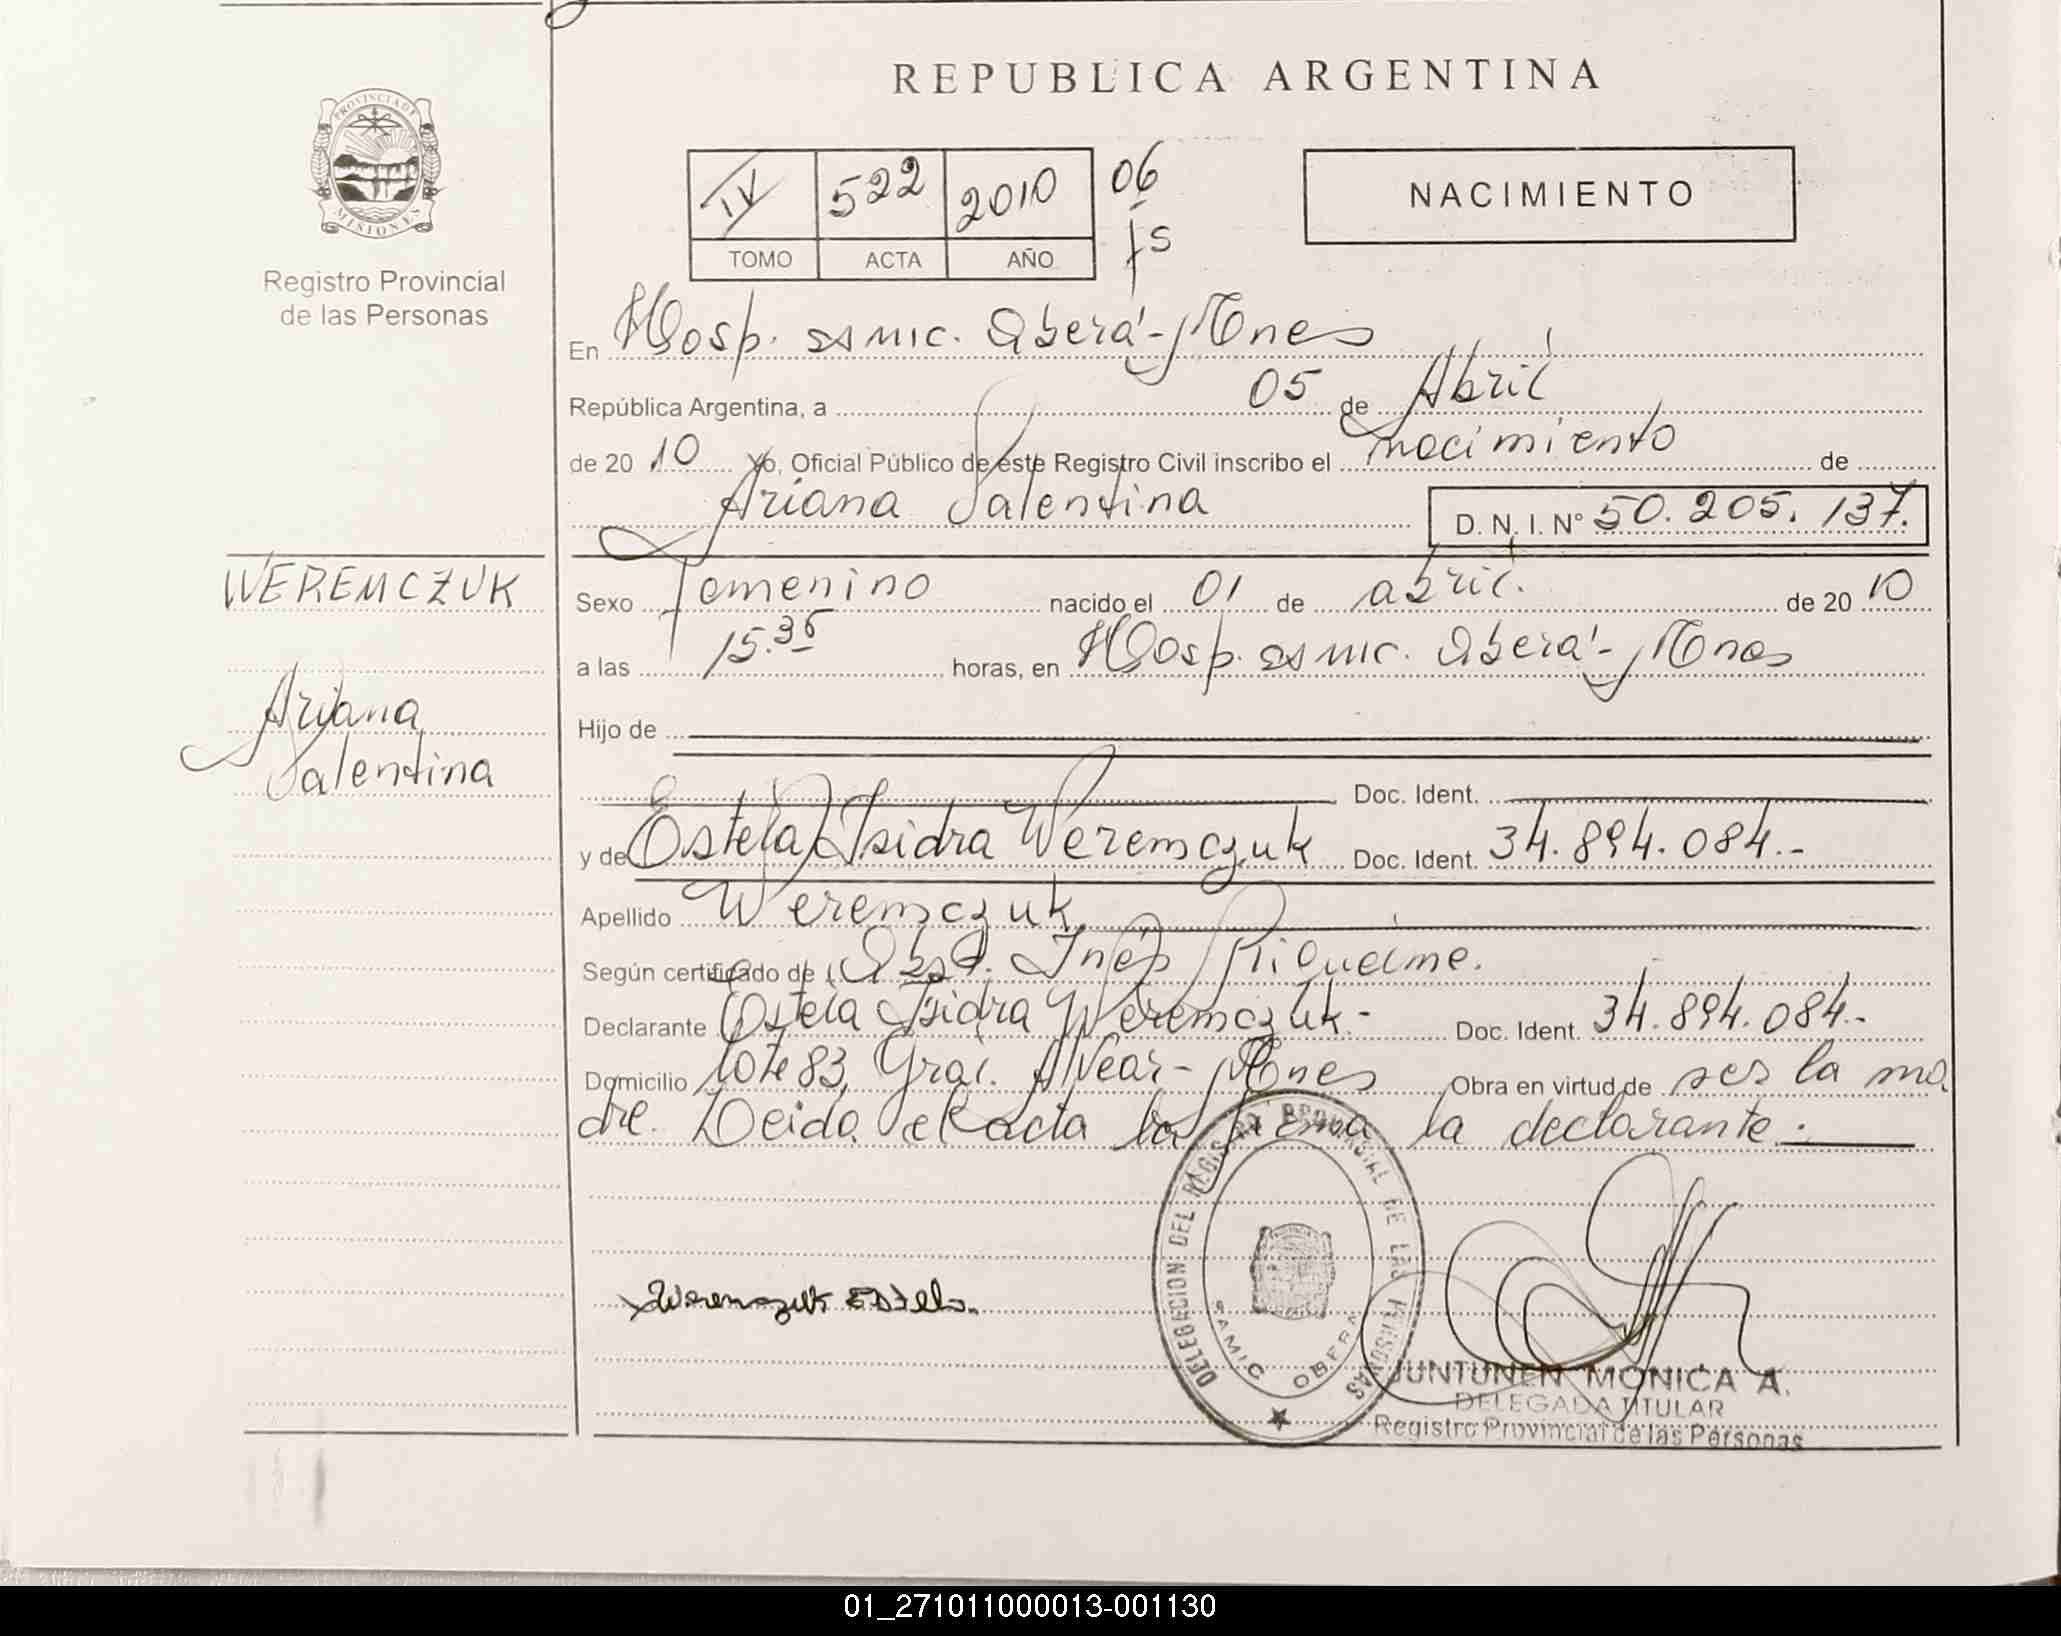 REPUBLICA ARGENTINA
PROVINCIA DE
MISIONES
Registro Provincial
de las Personas
IV 522 2010 06
TOMO ACTA AÑO fs
NACIMIENTO
En Hosp. SAMIC. Oberá - Mnes
República Argentina, a 05 de Abril
de 20 10 Yo, Oficial Público de este Registro Civil inscribo el nacimiento de
Ariana Valentina D. N. I. N° 50.205.137.
WEREMCZUK
Ariana
Valentina
Sexo femenino nacido el 01 de abril. de 20 10
a las 15.35 horas, en Hosp. SAMIC. Oberá - Mnes
Hijo de
Doc. Ident.
y de Estela Isidra Weremczuk Doc. Ident. 34.894.084.-
Apellido Weremczuk
Según certificado de Obst. Inés Riquelme.
Declarante Estela Isidra Weremczuk.- Doc. Ident. 34.894.084.-
Domicilio Lote 83, Gral. Alvear - Mnes Obra en virtud de ser la ma
dre. Leida el acta la firma la declarante.
Weremczuk Estela.
DELEGACION DEL REGISTRO PROVINCIAL DE LAS PERSONAS
SAMIC OBERA
JUNTUNEN MONICA A.
DELEGADA TITULAR
Registro Provincial de las Personas
01_271011000013-001130